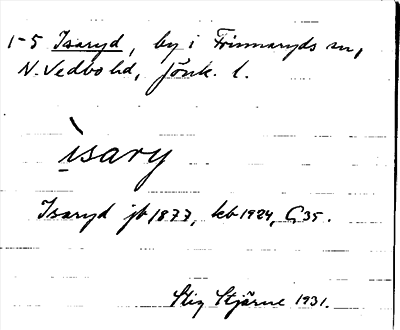 1-5 Isaryd, by i Frinnaryds sn,
N. Vedbo hd, Jönk. l.
ìsary
Isaryd jb 1877, kb 1924, C, 35.
Stig Stjärne 1931.